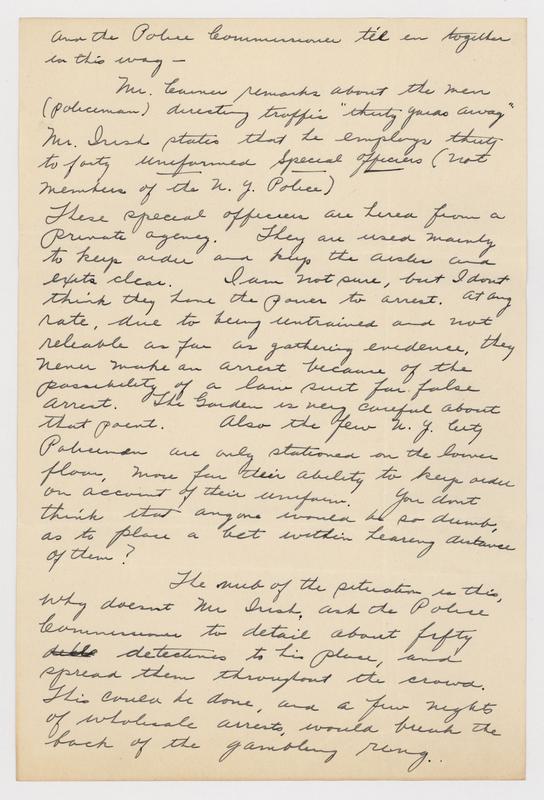 and the Police Commissioner til em together
in this way —
Mr. remarks about the men
(policeman) directing traffic "thirty yards away"
Mr. Irish states that he employs thirty
to forty uniformed Special officers (not
members of the N. Y. Police)
These special officiers are hired from a
Private agency. They are used mainly
to keep order and keep the aisles and
exits clear. I am not sure, but I dont
think they have the power to arrest. At any
rate, due to being untrained and not
reliable as far as gathering evidence, they
never make an arrest because of the
possibility of a law suit for false
arrest. The Garden is very careful about
that point. Also the few N. Y. City
Policemen are only stationed on the lower
floor, more for their ability to keep order
on account of their uniform. You dont
think that anyone would be so dumb,
as to place a bet within hearing distance
of them?
The nub of the situation is this,
Why doesnt Mr Irish, ask the Police
Commissioner to detail about fifty
detectives to his place, and
spread them throughout the crowd.
This could be done, and a few nights
of wholesale arrests, would break the
back of the gambling ring..